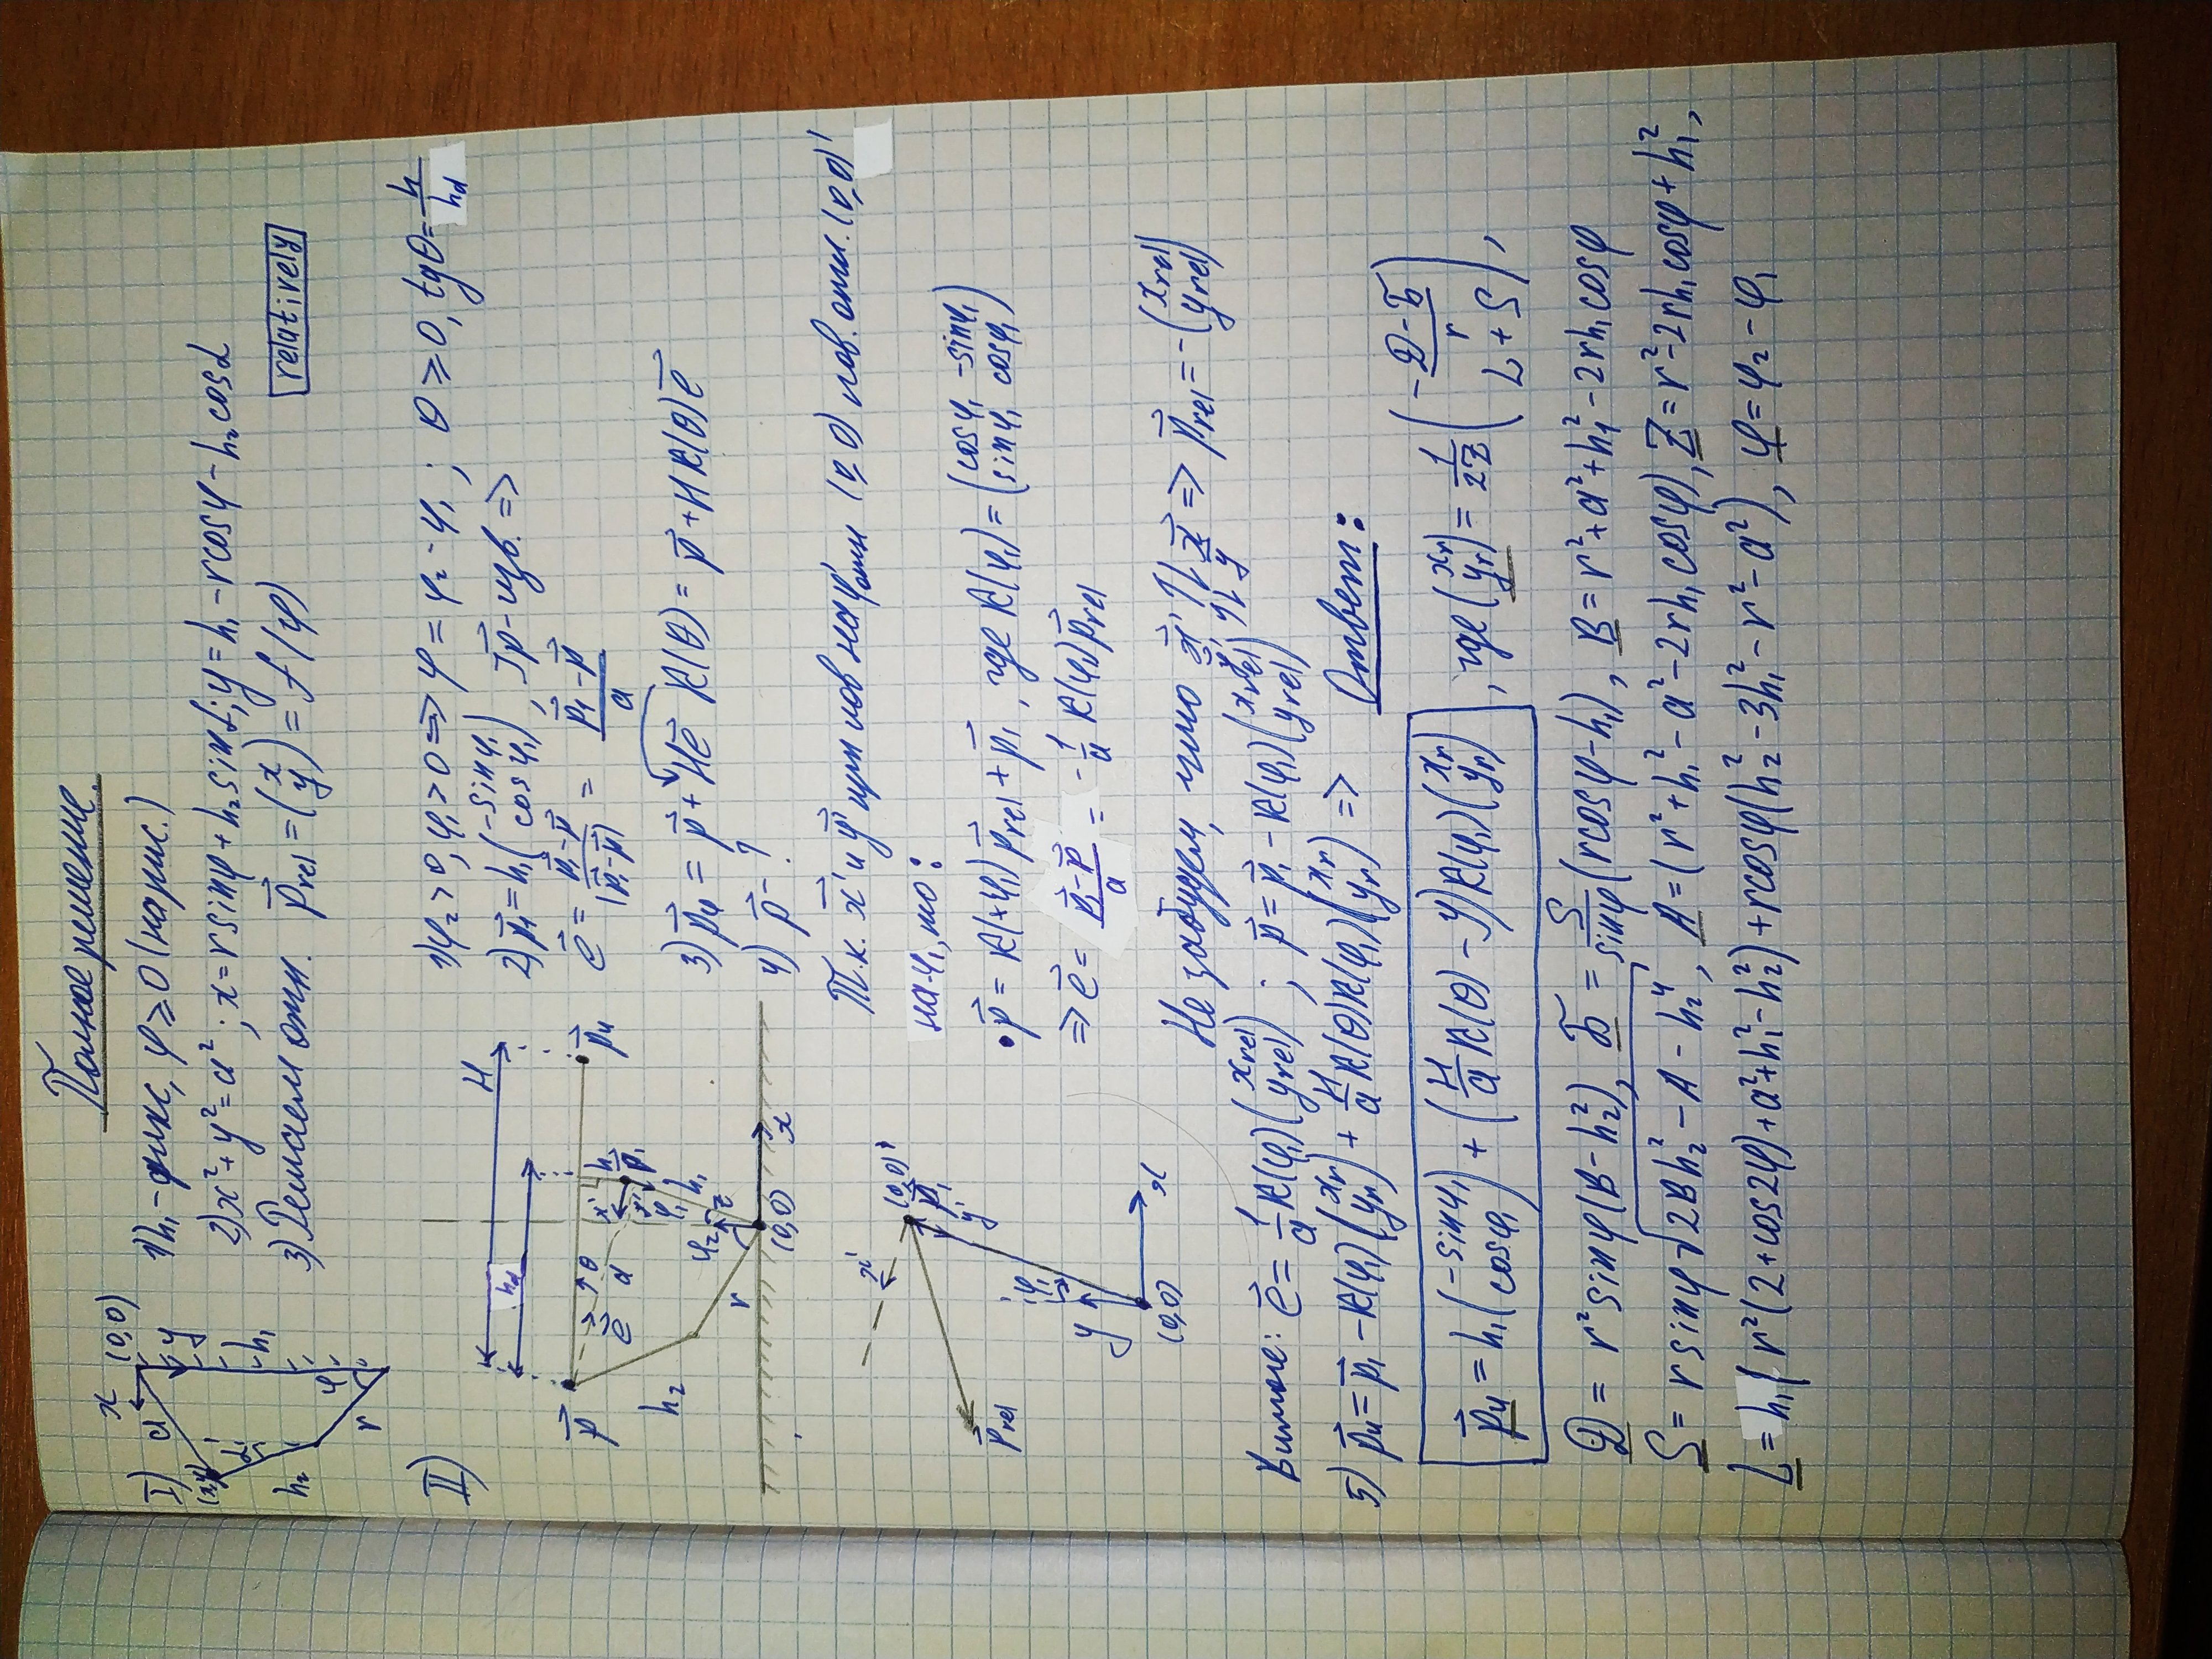 Полное решение.
I)
x (0,0)
a y
(x,y)
α
h₁
h₂
φ
r
1) h₁ - фикс, φ ≥ 0 (на рис.)
2) x² + y² = a² ; x = r sinφ + h₂ sinα; y = h₁ - r cosφ - h₂ cosα
3) Решаем отн. p⃗rel = (x y) = f(φ)
relatively
II)
1) φ₂ > 0, φ₁ > 0 => φ = φ₂ - φ₁ ; θ ≥ 0, tgθ = h/hd
H
hd
2) p⃗₁ = h₁(-sinφ₁ cosφ₁), p⃗ - изв. =>
p⃗ θ p⃗u
e⃗ a x' h p⃗₁
y'
e⃗ = (p⃗₁ - p⃗)/|p⃗₁ - p⃗| = (p⃗₁ - p⃗)/a
h₂ φ₁ h₁
φ₂ z
r
(0,0) x
3) p⃗u = p⃗ + He⃗ R(θ) = p⃗ + H R(θ)e⃗
4) p⃗ - ?
Т.к. x⃗' и y⃗' при пов на φ₁ отн (0,0) пов. отн. (0,0)'
на φ₁, то:
x' (0,0)'
p⃗₁
y'
p⃗rel
φ₁
y
(0,0) x
• p⃗ = R(+φ₁) p⃗rel + p⃗₁, где R(φ₁) = (cosφ₁ -sinφ₁ sinφ₁ cosφ₁)
=> e⃗ = (p⃗₁ - p⃗)/a = -1/a R(φ₁) p⃗rel
Не забудем, что x⃗' ↑↓ x⃗ => p⃗rel = -(xrel yrel)
y⃗' ↑↓ y⃗
В итоге: e⃗ = 1/a R(φ₁)(xrel yrel) ; p⃗ = p⃗₁ - R(φ₁)(xrel yrel)
5) p⃗u = p⃗₁ - R(φ₁)(xr yr) + H/a R(θ)R(φ₁)(xr yr) => Ответ:
p⃗u = h₁(-sinφ₁ cosφ₁) + (H/a R(θ) - У)R(φ₁)(xr yr), где (xr yr) = 1/2Z (-Д-Б/r L+S),
Д = r² sinφ(B - h₂²), Б = S/sinφ (r cosφ - h₁), B = r² + a² + h₁² - 2rh₁ cosφ
S = r sinφ √2Bh₂² - A - h₂⁴, A = (r² + h₁² - a² - 2rh₁ cosφ), Z = r² - 2rh₁ cosφ + h₁²,
L = h₁(r²(2 + cos2φ) + a² + h₁² - h₂²) + r cosφ(h₂² - 3h₁² - r² - a²), φ = φ₂ - φ₁